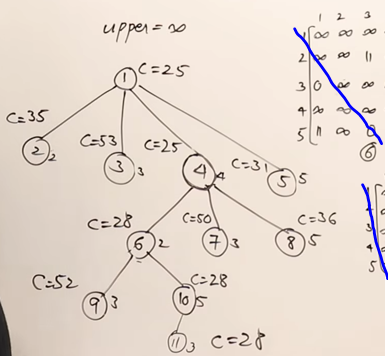 upper = ∞
1 C=25
C=35
2 2
C=53
3 3
C=25
4 4
C=31
5 5
C=28
6 2
C=50
7 3
C=36
8 5
C=52
9 3
C=28
10 5
11 3 C=28
1 2 3
1 ∞ ∞ ∞
2 ∞ ∞ 11
3 0 ∞ ∞
4 ∞ ∞
5 11 ∞ 0
6
3
4
5